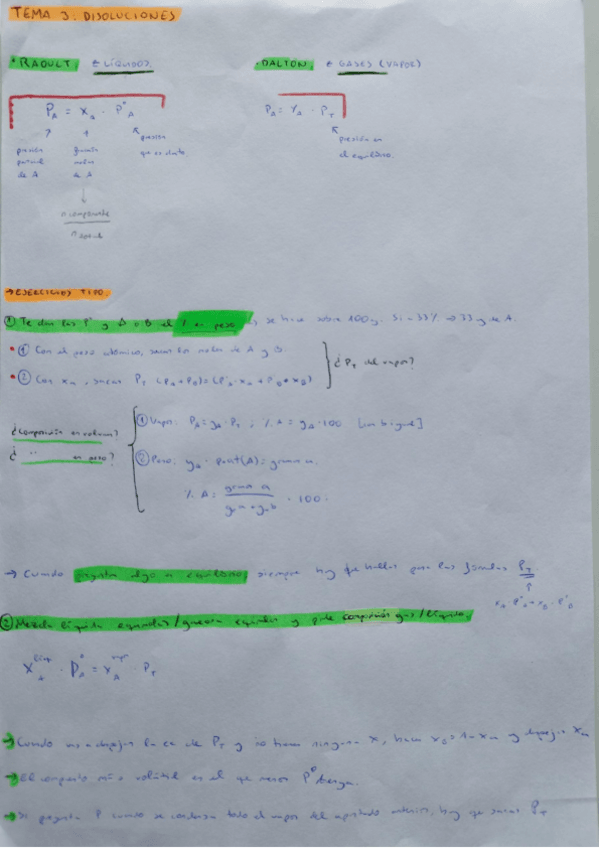 TEMA 3: DISOLUCIONES
• RAOULT, ∈ LÍQUIDOS.
• DALTON, ∈ GASES (VAPOR)
P_A = X_A · P°_A
P_A = Y_A · P_T
presión parcial de A
fracción molar de A
presión
presión en el equilibrio.
n componente
n total
→ EJERCICIOS TIPO.
① Te dan las P° y A o B el % en peso se hace sobre 100g. Si = 33% → 33 g de A.
• ① Con el peso atómico, sacas los moles de A y B.
• ② Con X_A, sacas P_T (P_A + P_B) = (P°_A · X_A + P°_B · X_B)
¿P_T del vapor?
¿Composición en volumen?
¿ " en peso?
① Vapor: P_A = Y_A · P_T ; % A = Y_A · 100.
② Peso: Y_A · Pmat(A) = gramos a.
% A = gram a / g a + g b · 100.
→ Cuando pregunta algo en equilibrio, siempre hay que hallar para las fórmulas P_T
X_A · P°_A + X_B · P°_B
② Mezcla líquida equimolar/ y pide composición gas/líquido.
X_A^líq · P°_A = X_A^vap · P_T
→ Cuando vas a despejar la ec de P_T y no tienes ninguna X, haces X_B = 1 - X_A y despejas X_A
→ El compuesto más volátil es el que menor P° tenga.
→ Si pregunta P cuando se condensa todo el vapor del apartado anterior, hay que sacar P_T